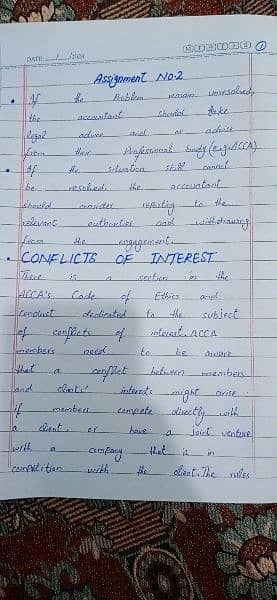 DATE: __/__/202
M T W T F S S
Assignment No:2
• If the Problem remain unresolved,
the accountant should take
legal advice and or advice
from their Professional body (e.g. ACCA)
• If the situation still cannot
be resolved the accountant
should consider reporting to the
relevant authorities and withdrawing
from the engagement.
• CONFLICTS OF INTEREST
There is a section in the
ACCA's Code of Ethics and
Conduct dedicated to the subject
of conflicts of interest. ACCA
members need to be aware
that a conflict between members
and clients' interests might arise
if members compete directly with
a client, or have a joint venture
with a company that is in
competition with the client. The rules